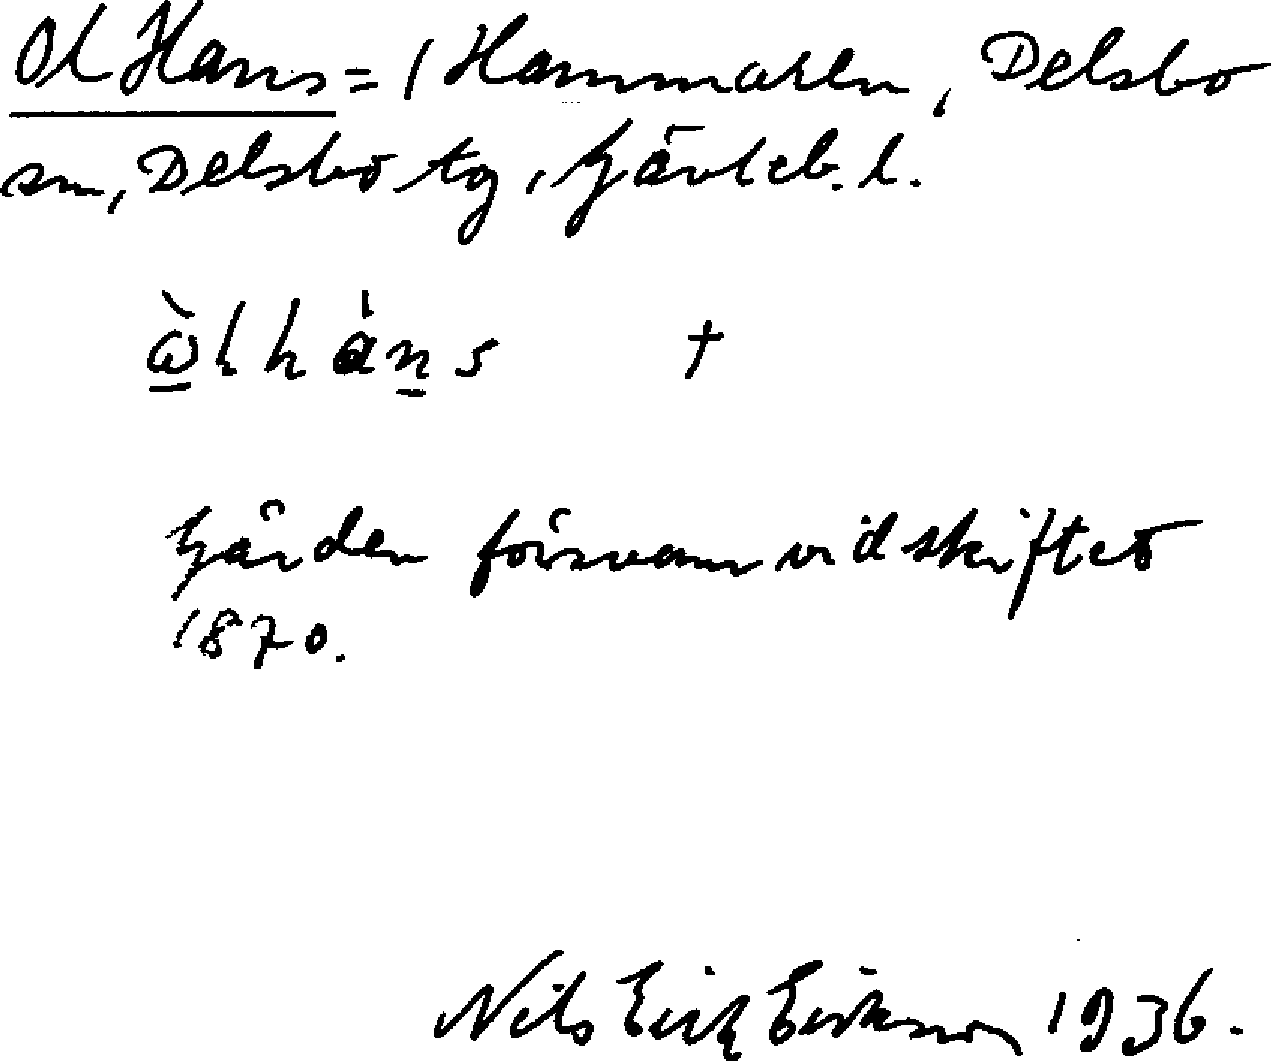 Ol Hans = 1 Hammaren, Delsbo
sn, Delsbo tg, Gävleb. l.
o̱̊̀lhàṉs †
Gården försvann vid skiftet
1870.
Nils Erik Erikson 1936.